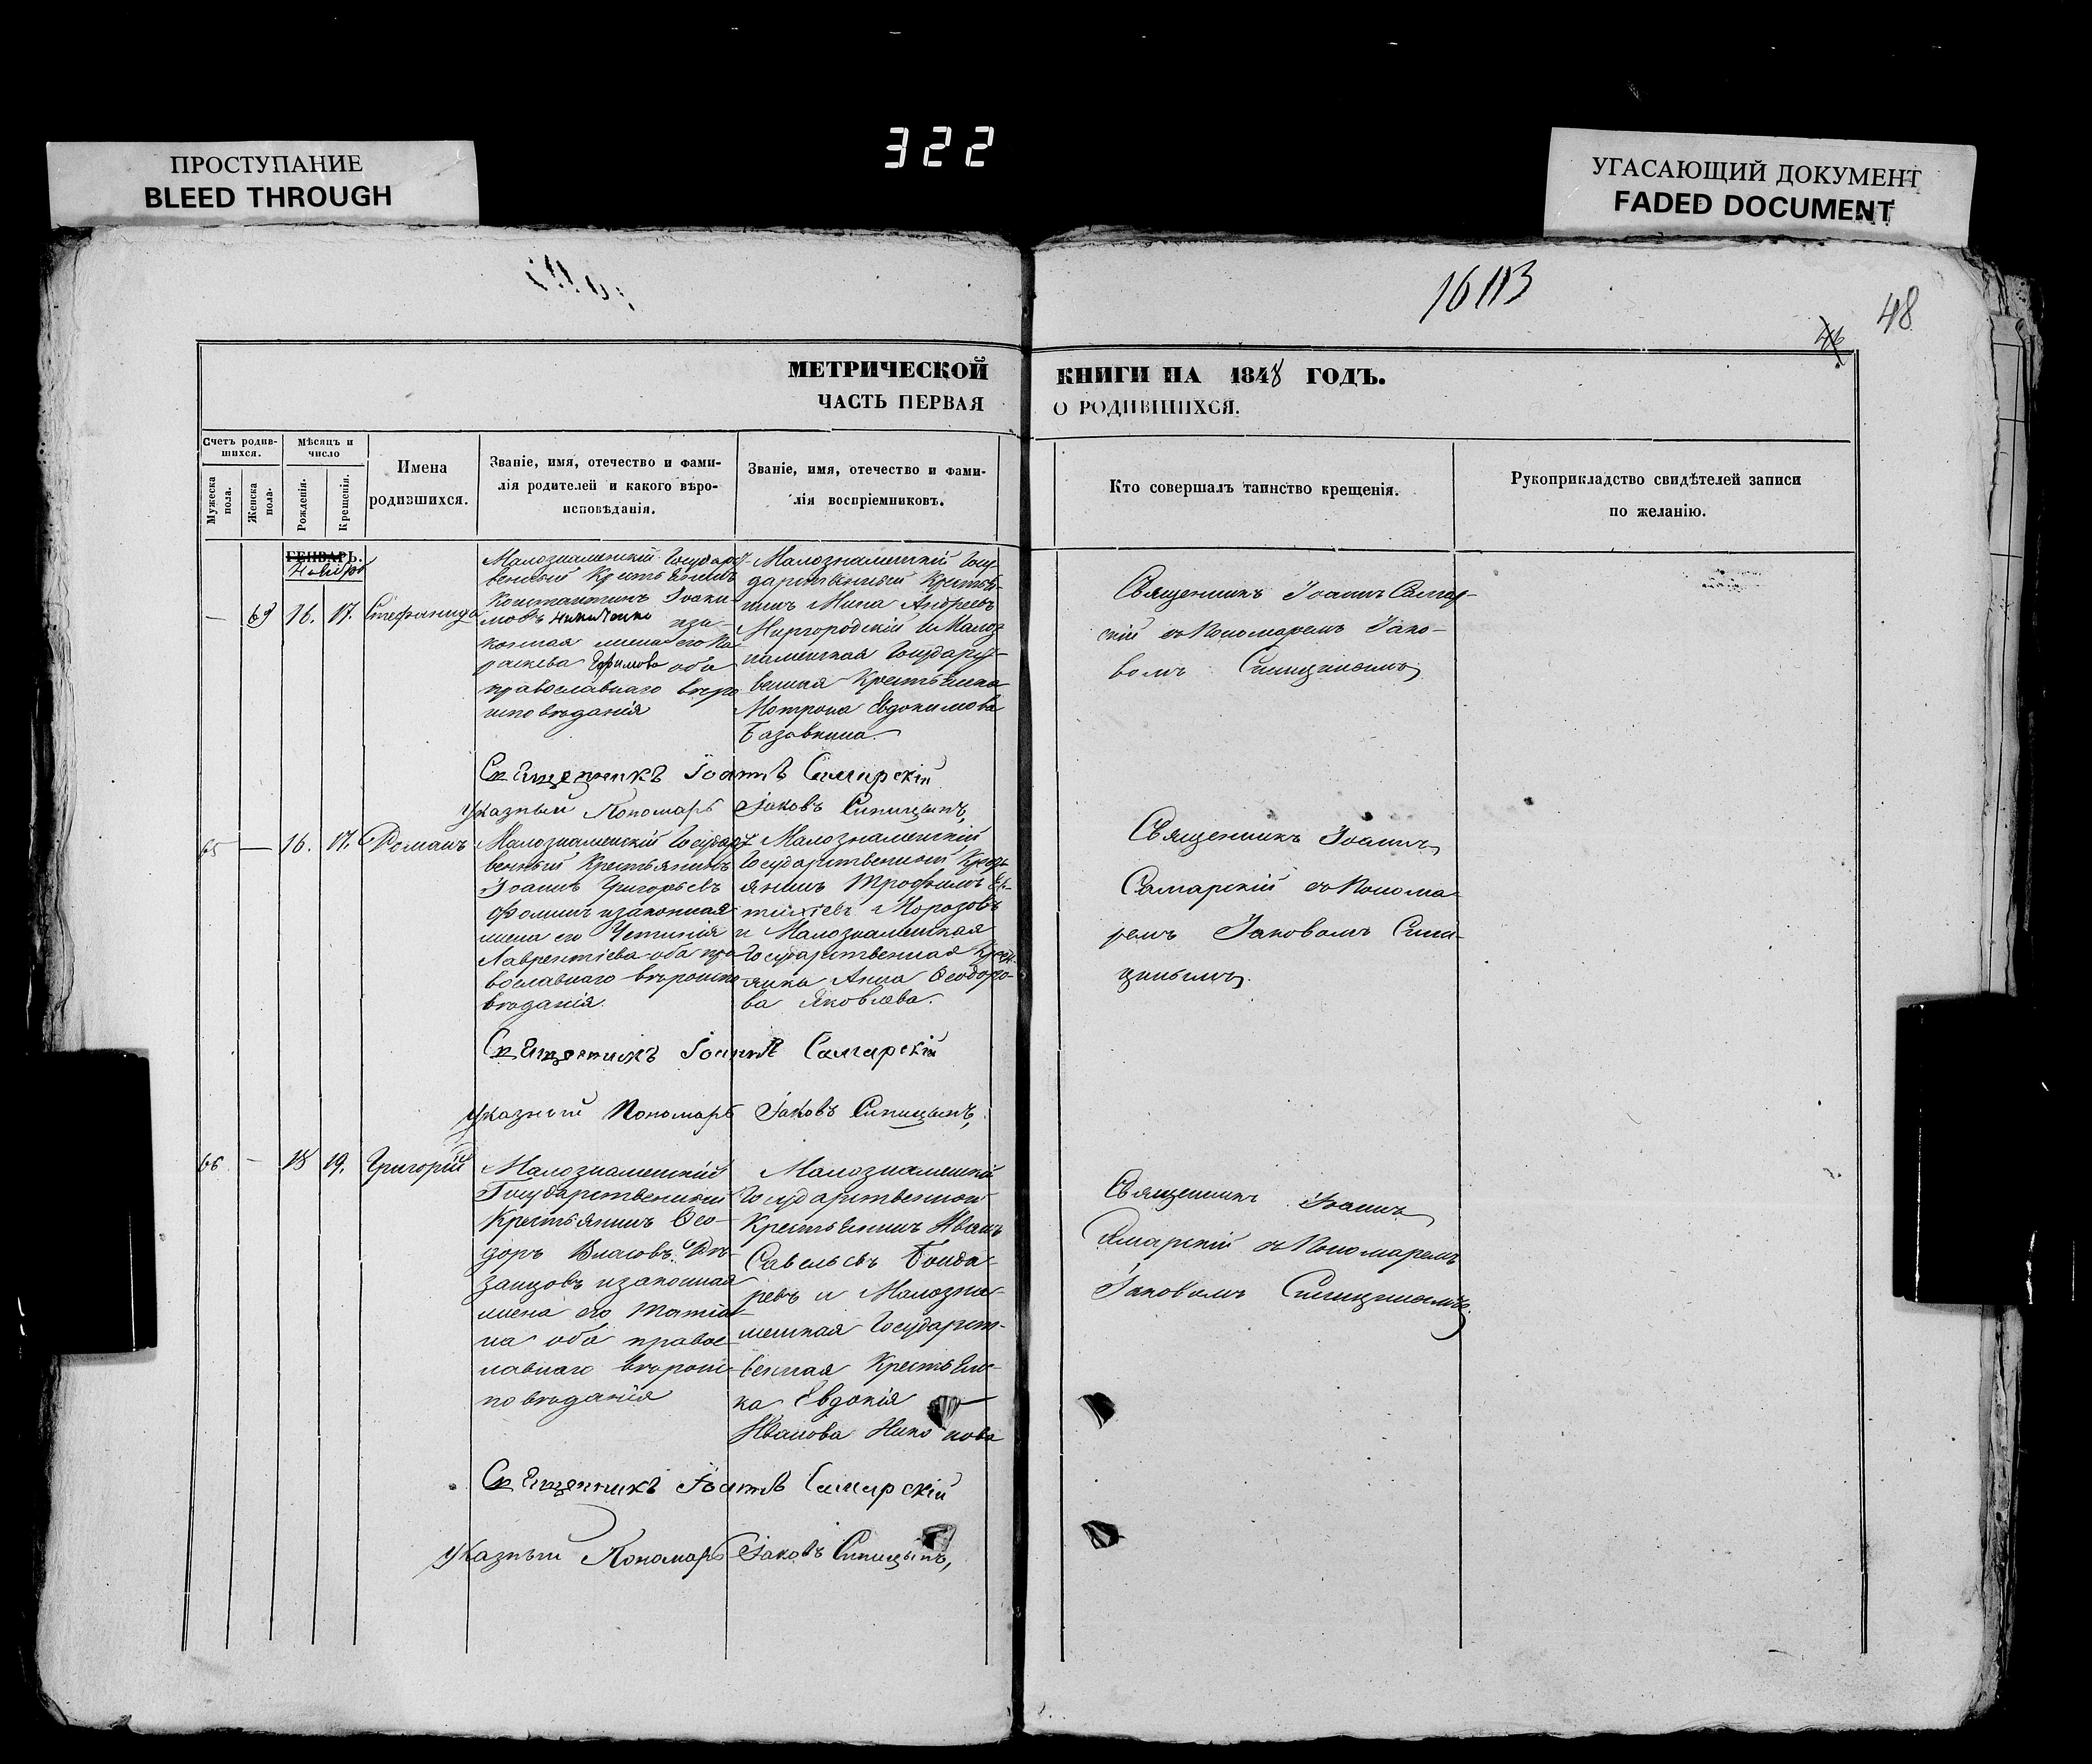 322
ПРОСТУПАНИЕ
BLEED THROUGH
УГАСАЮЩИЙ ДОКУМЕНТ
FADED DOCUMENT
16113
48
46
МЕТРИЧЕСКОЙ КНИГИ НА 1848 ГОДЪ.
ЧАСТЬ ПЕРВАЯ О РОДИВШИХСЯ.
Счетъ родив-
шихся.
Мужеска пола.
Женска пола.
Мѣсяцъ и
число
Рожденія.
Крещенія.
Имена
родившихся.
Званіе, имя, отечество и фами-
лія родителей и какого вѣро-
исповѣданія.
Званіе, имя, отечество и фами-
лія воспріемниковъ.
Кто совершалъ таинство крещенія.
Рукоприкладство свидѣтелей записи
по желанію.
ГЕНВАРЬ.
Ноябрь
—
16.
17.
Стефанида
Малознаменскій Государст-
венный Крестьянинъ
Константинъ Іоаки-
мовъ Никитенко иза-
конная жена его Па-
раскева Ефимова оба
православнаго вѣро
исповѣданія
Малознаменскій Госу-
дарственный Крестья-
нинъ Мина Андреевъ
Миргородскій и Малоз
наменская Государст-
венная Крестьянка
Мотрона Евдокимова
Базавкина.
Священникъ Іоаннъ Самар-
скій съ Пономаремъ Іако-
вомъ Синицинымъ
Священникъ Іоаннъ Самарскій
Указный Пономарь Іаковъ Синицынъ,
65
—
16.
17.
Романъ
Малознаменскій Государст
венный Крестьянинъ
Іоаннъ Григорьевъ
Фоминъ изаконная
жена его Устинія
Лаврентіева оба пра-
вославнаго вѣроиспо
вѣданія.
Малознаменскій
Государственной Крест
янинъ Трофимъ Ев-
тихіевъ Морозовъ
и Малознаменская
Государственная Крест-
янка Анна Ѳеодоро-
ва Яковлева.
Священникъ Іоаннъ
Самарскій съ Понома-
ремъ Іаковомъ Сини-
цинымъ.
Священникъ Іоаннъ Самарскій
Указный Пономарь Іаковъ Синицынъ,
66
—
18
19.
Григорій
Малознаменскій
Государственный
Крестьянинъ Ѳео-
доръ Власовъ
изаконная
жена его Татіа-
на оба правос-
лавнаго вѣроис-
повѣданія
Малознаменскій
Государственной
Крестьянинъ Иванъ
Савельевъ Бонда-
ревъ и Малозна-
менская Государст-
венная Крестьян-
ка Евдокія
Иванова Никонова
Священникъ Іоаннъ
Самарскій съ Пономаремъ
Іаковомъ Синицинымъ.
Священникъ Іоаннъ Самарскій
Указный Пономарь Іаковъ Синицынъ,